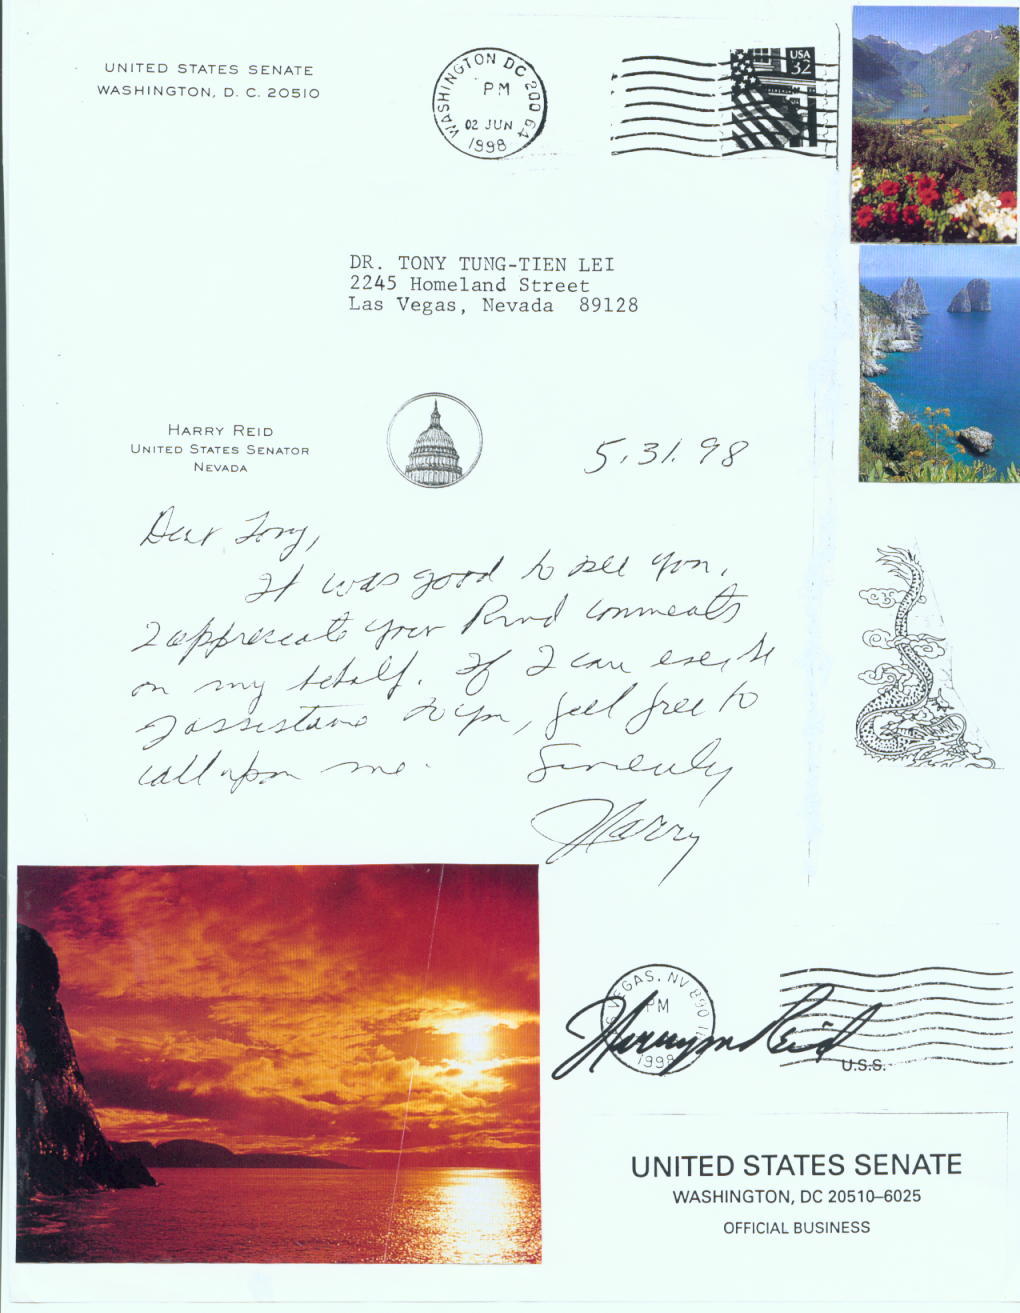 UNITED STATES SENATE
WASHINGTON, D. C. 20510
WASHINGTON DC 200 64
PM
02 JUN
1998
USA
32
DR. TONY TUNG-TIEN LEI
2245 Homeland Street
Las Vegas, Nevada 89128
HARRY REID
UNITED STATES SENATOR
NEVADA
5.31.98
Dear Tony,
It was good to see you.
I appreciate your kind comments
on my behalf. If I can ever be
of assistance to you, feel free to
call upon me.
Sincerely
Harry
VEGAS, NV 890
PM
1998
Harry M Reid
U.S.S.
UNITED STATES SENATE
WASHINGTON, DC 20510–6025
OFFICIAL BUSINESS